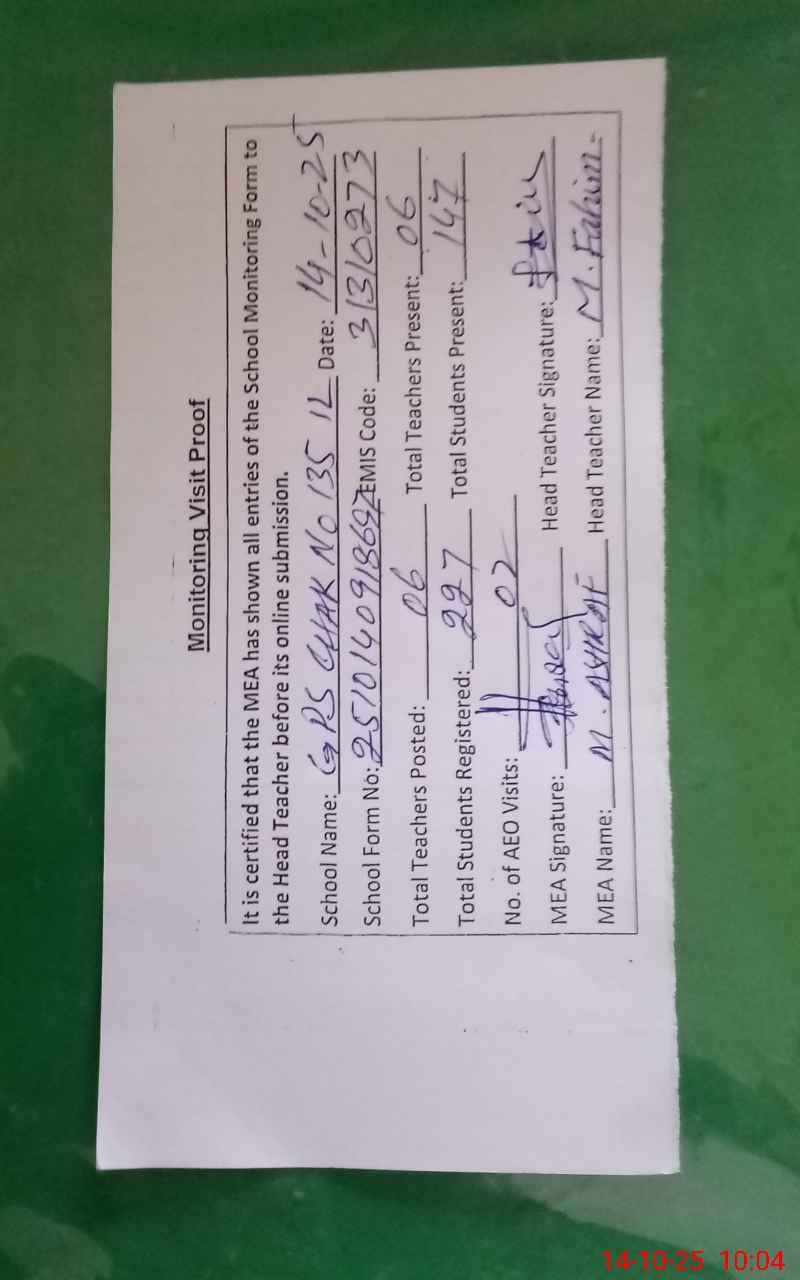 Monitoring Visit Proof
It is certified that the MEA has shown all entries of the School Monitoring Form to
the Head Teacher before its online submission.
School Name: GPS CHAK NO 135 1L Date: 14-10-25
School Form No: 25101409186 EMIS Code: 31310273
Total Teachers Posted: 06 Total Teachers Present: 06
Total Students Registered: 227 Total Students Present: 147
No. of AEO Visits: 02
MEA Signature: Head Teacher Signature:
MEA Name: M. ASHRAF Head Teacher Name: M. Fahim
14-10-25 10:04